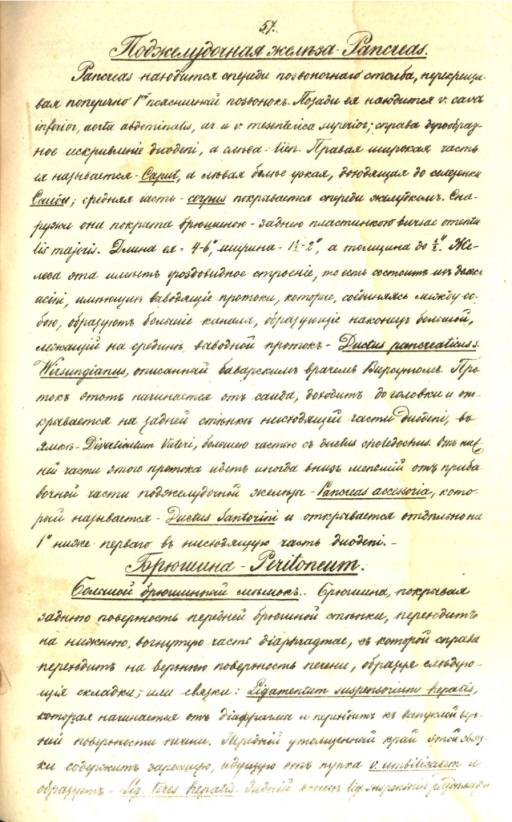 57.
Поджелудочная желѣза - Pancreas.
Pancreas находится спереди позвоночнаго столба, перекрещи-
вая поперечно 1ый поясничный позвонокъ. Позади ея находится v. cava
inferior, aorta abdominalis, ar. и v. mesenterica superior; справа дугообраз-
ное искривленiе duodeni, а слѣва: lien. Правая широкая часть
ея называется - Caput, а лѣвая болѣе узкая, доходящая до селезенки
Cauda; средняя часть - corpus покрывается спереди желудкомъ. Сна-
ружи она покрыта брюшиною - заднею пластинкою bursae omenta-
lis majoris. Длина ея = 4-6", ширина - 1½-2", а толщина до ½". Же-
леза эта имѣетъ гроздовидное строенiе, то есть состоитъ изъ
acini, имѣющихъ выводящiе протоки, которые, соединяясь между со-
бою, образуютъ большiе каналы, образующiе наконецъ большой,
лежащiй на срединѣ выводной протокъ - Ductus pancreaticus s.
Wirsungianus, описанный баварскимъ врачемъ Вирсунгомъ. Про-
токъ этотъ начинается отъ cauda, доходитъ до головки и от-
крывается на задней стѣнкѣ нисходящей части duodeni, въ
Diverticulum Vateri, большею частью съ ductus choledochus. Отъ
ней части этого протока идетъ иногда внизъ меньшiй отъ приба-
вочной части поджелудочной железы - Pancreas accessoria, кото-
рый называется - Ductus Santorini и открывается отдѣльно на
1" ниже перваго въ нисходящую часть duodeni. -
Брюшина - Peritoneum.
Большой брюшинный мѣшокъ. Брюшина, покрывая
заднюю поверхность передней брюшной стѣнки, переходитъ
на нижнюю, вогнутую часть diaphragmae, съ которой справа
переходитъ на верхнюю поверхность печени, образуя слѣдую-
щiя складки, или связки: Ligamentum suspensorium hepatis,
которая начинается отъ дiафрагмы и переходитъ къ выпуклой верх-
ней поверхности печени. Переднiй утолщенный край этой связ-
ки содержитъ заросшую, идущую отъ пупка v. umbilicalem и
образуетъ - Lig. teres hepatis. Заднiй конецъ lig. suspensorii